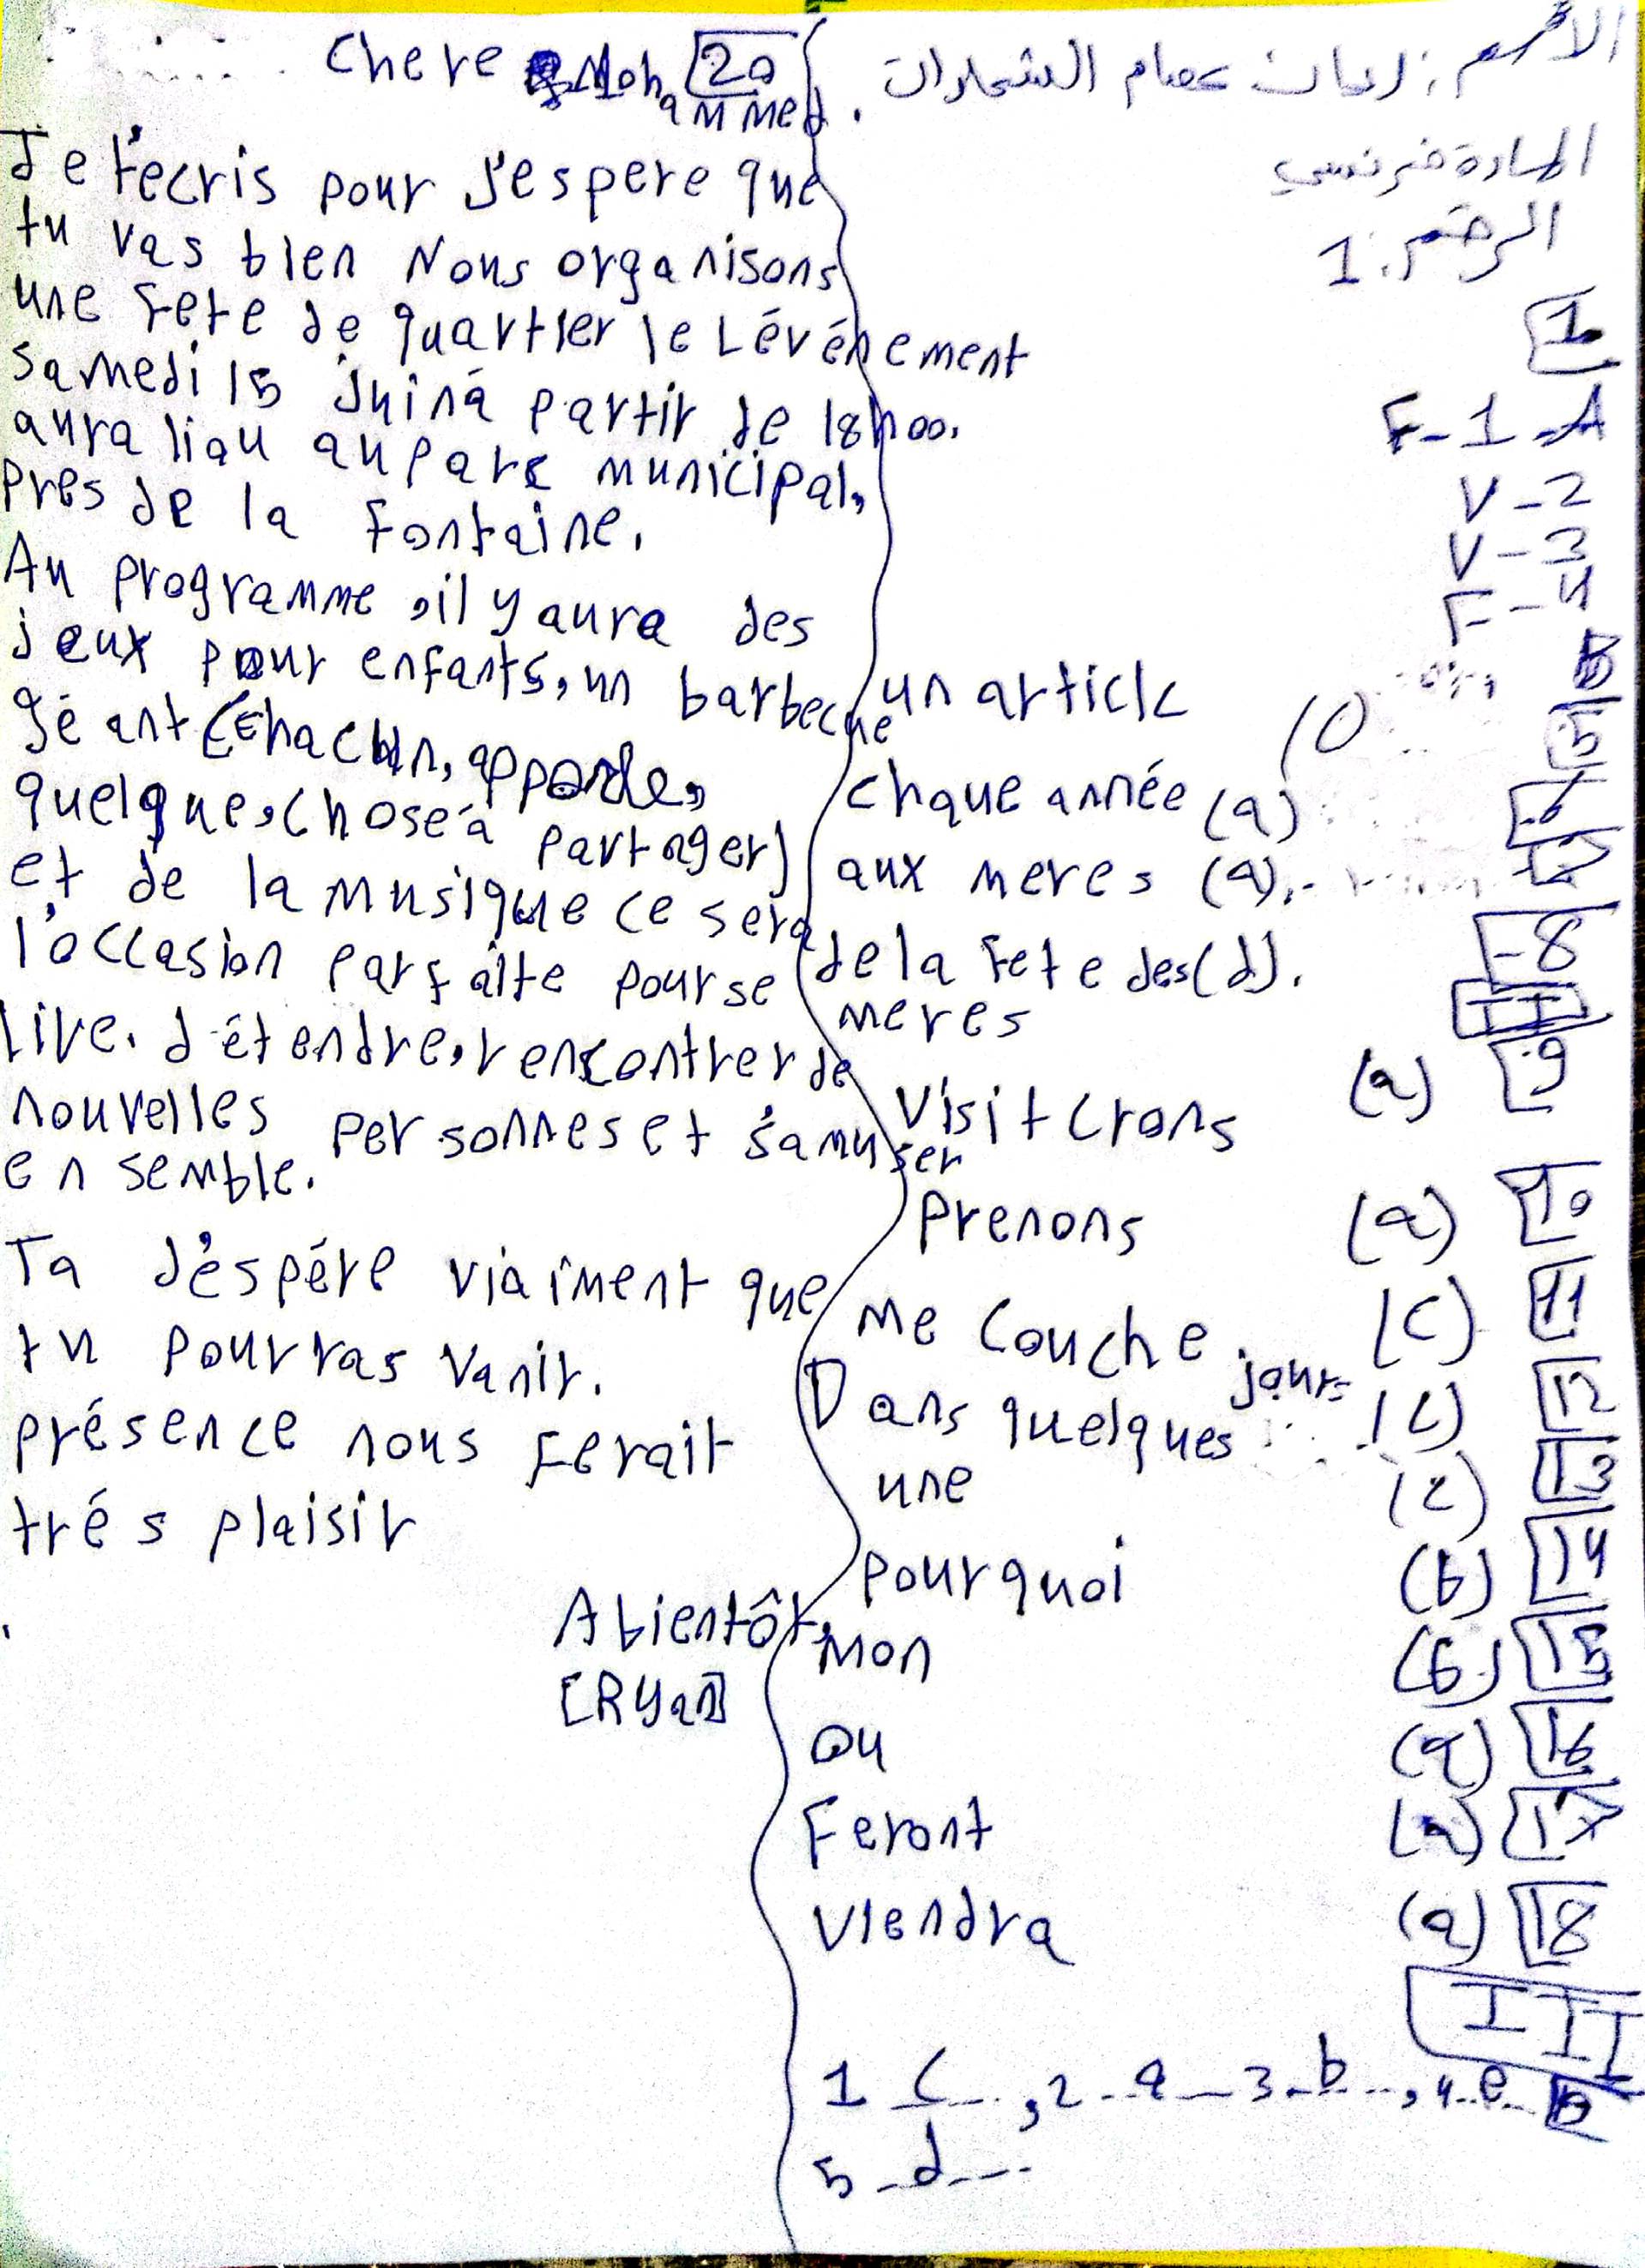 الاسم: ريان عصام الشحادات.
المادة فرنسي
الرقم: 1
1
F-1-A
V-2
V-3
F-4
un article
5
chque année (a)
6
aux meres (a)
7
de la Fete des (d).
meres
8
II
visiterons (a) 9
Prenons (a) 10
Me Couche (c) 11
Dans quelques jours (c) 12
une (c) 13
pourquoi (b) 14
Mon (b) 15
ou (a) 16
Feront (a) 17
Viendra (a) 18
III
1 c , 2 a 3 b , 4 e
5 d
20
Chere Mohammed
Je t'ecris pour J'espere que
tu vas bien Nous organisons
une Fete de quartier le Lévénement
Samedi 15 Juin à partir de 18h00.
aura liau au Parc municipal,
Pres de la Fontaine.
Au programme, il y aura des
jeux pour enfants, un barbecue
gé ant (Chacun, apporte,
quelque, chose à Partager)
et de la musique ce sera
l'occasion Parfaite pour se
Live. détendre, rencontrer de
nouvelles Personnes et s'amuser
en semble.
Ta J'espére viaiment que
tu pourras Vanir.
présence nous Ferait
trés plaisir
A bientôt,
[Ryan]